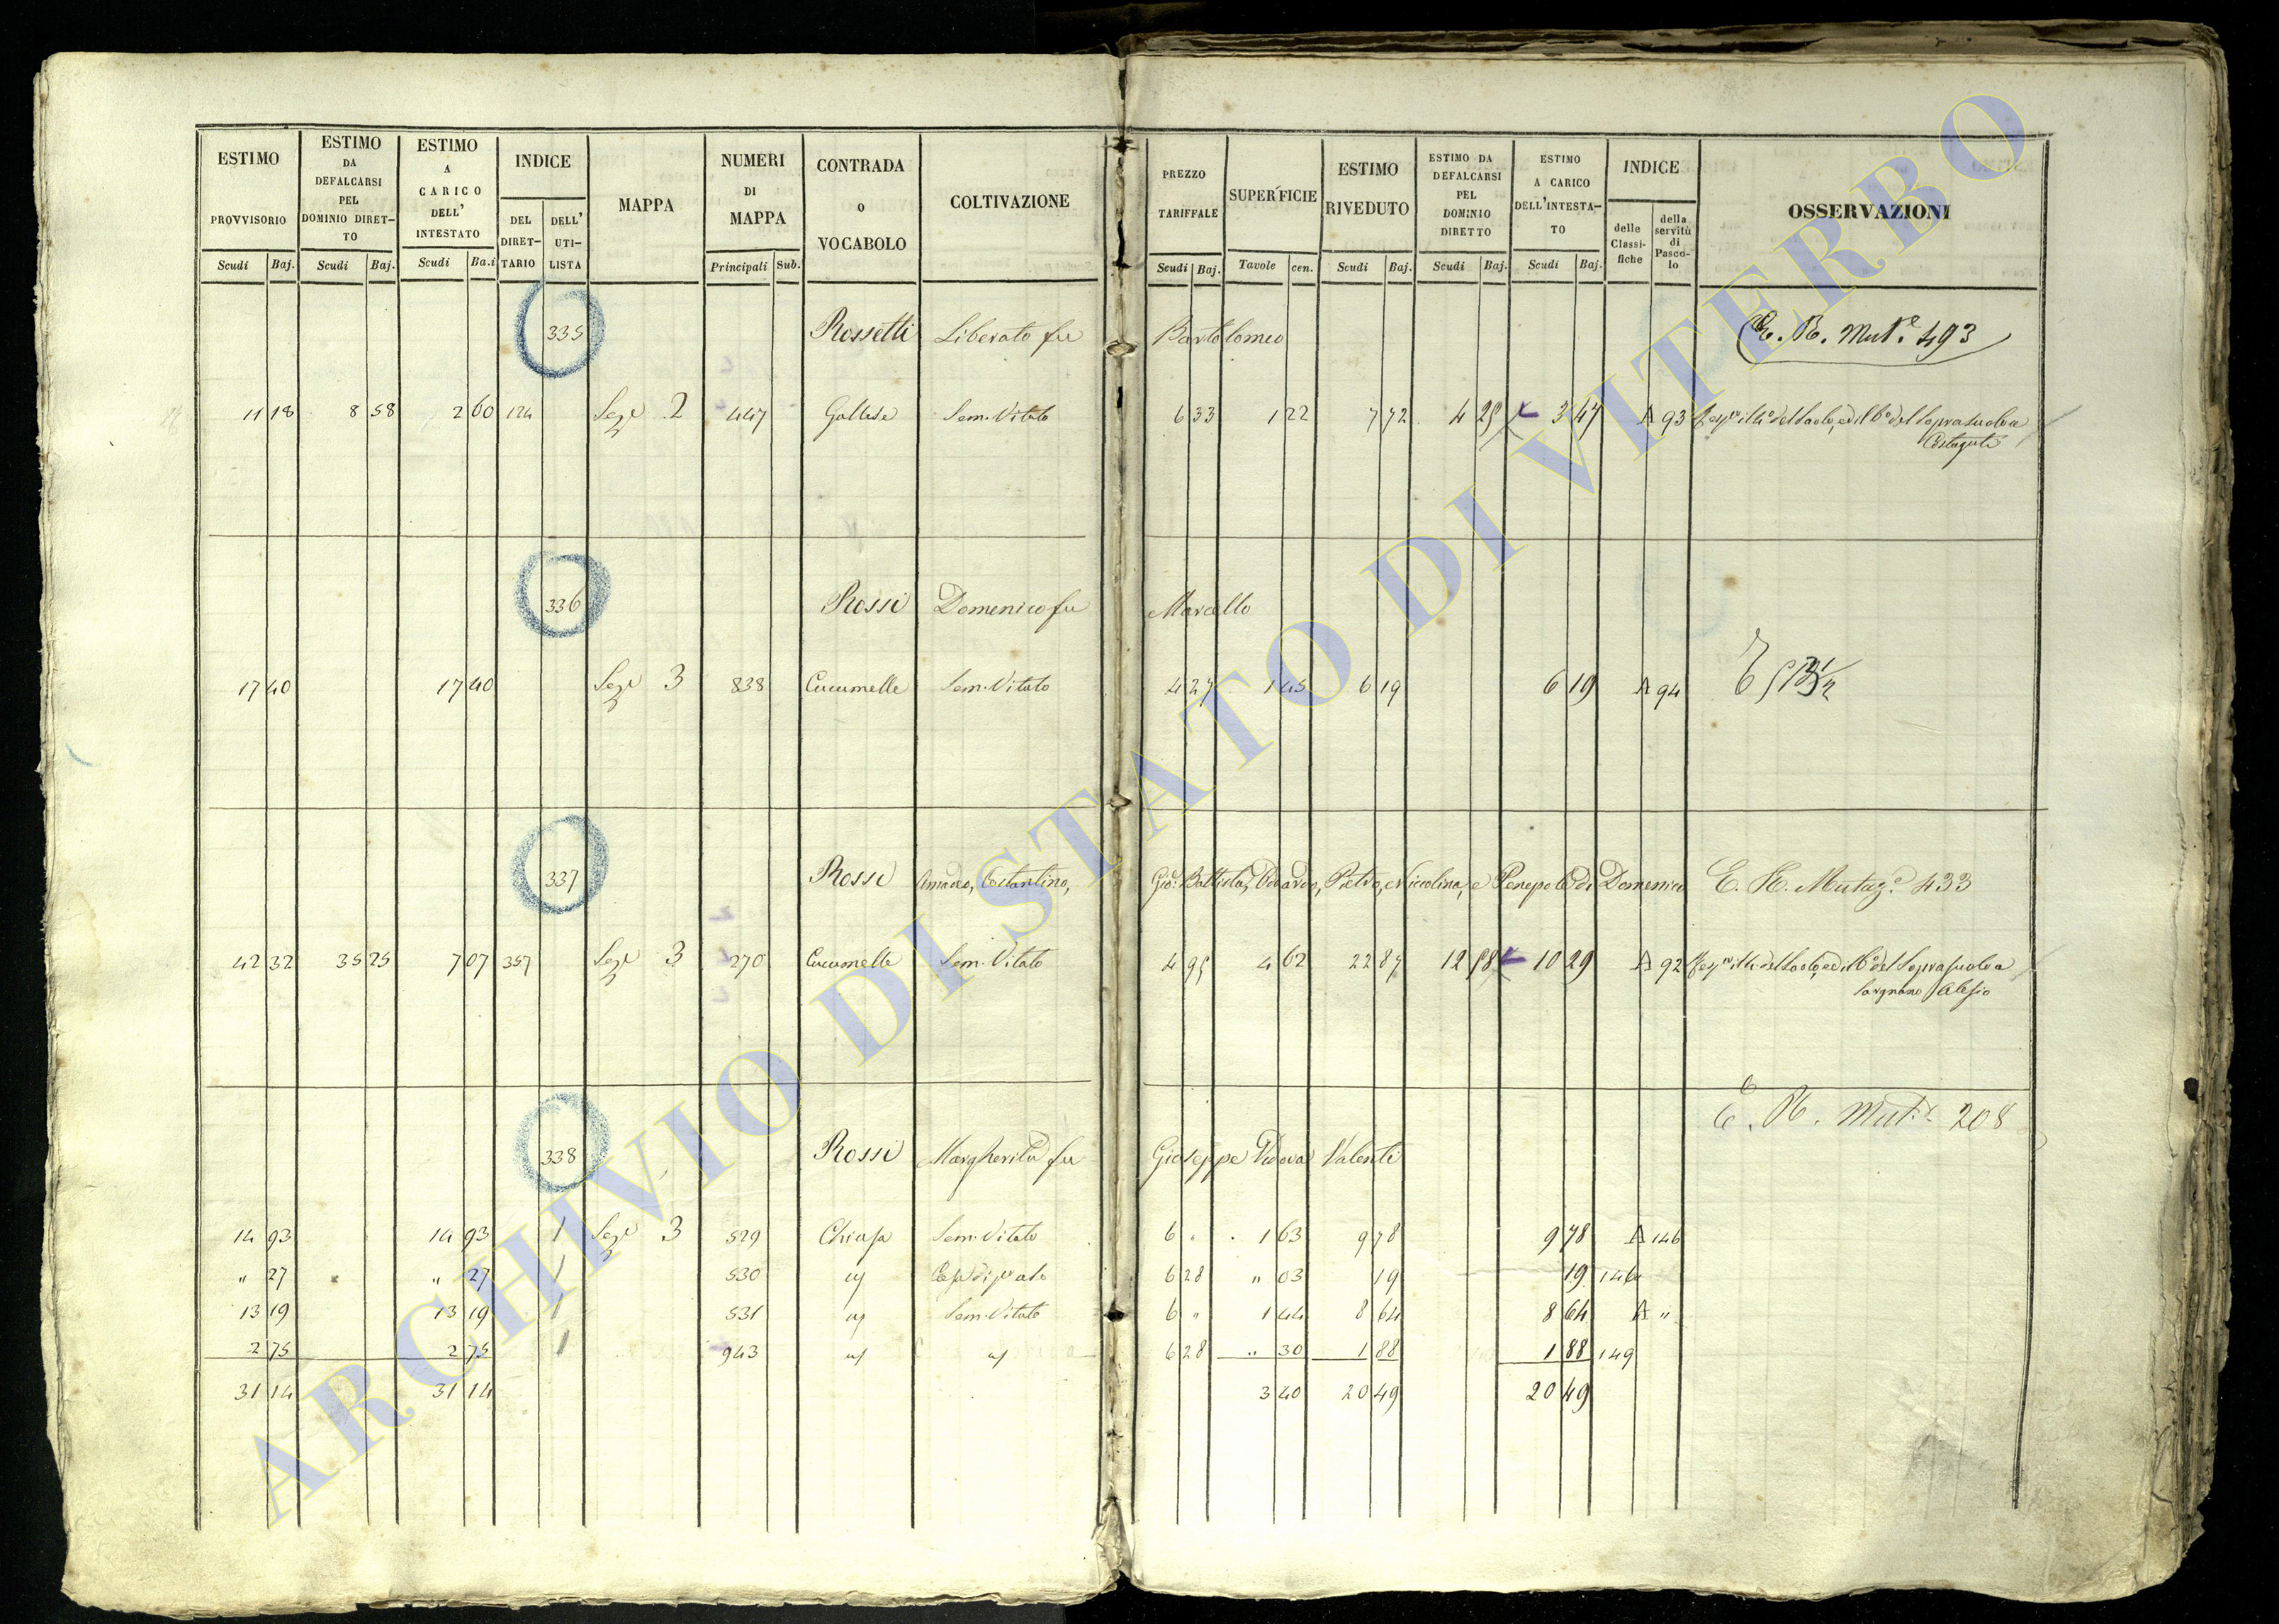 ESTIMO PROVVISORIO | ESTIMO DA DEFALCARSI PEL DOMINIO DIRET-TO | ESTIMO A CARICO DELL' INTESTATO | INDICE | MAPPA | NUMERI DI MAPPA | CONTRADA O VOCABOLO | COLTIVAZIONE | PREZZO TARIFFALE | SUPERFICIE | ESTIMO RIVEDUTO | ESTIMO DA DEFALCARSI PEL DOMINIO DIRETTO | ESTIMO A CARICO DELL'INTESTA-TO | INDICE | OSSERVAZIONI
Scudi | Baj. | Scudi | Baj. | Scudi | Ba.i | DEL DIRET-TARIO | DELL' UTI-LISTA | Principali | Sub. | Scudi | Baj. | Tavole | cen. | Scudi | Baj. | Scudi | Baj. | Scudi | Baj. | delle Classi-fiche | della servitù di Pasco-lo
335 Rossetti Liberato fu Bartolomeo E. R. Mut.e 493
11 18 8 58 2 60 124 Sez.e 2 447 Gallese Sem. Vitato 6 33 1 22 7 72 4 25 3 47 A 93 del Suolo, ed del Soprasuolo a
Costaguti
336 Rossi Domenico fu Marcello
17 40 17 40 Sez.e 3 838 Cucumelle Sem. Vitato 4 27 1 45 6 19 6 19 A 94
337 Rossi Amadeo, Costantino, Gio: Battista, Odoardo, Pietro, Niccolina, e Penepole di Domenico E. R. Mutaz.e 433
42 32 35 25 7 07 357 Sez.e 3 270 Cucumelle Sem. Vitato 4 95 4 62 22 87 12 58 10 29 A 92 del Suolo, ed del Soprasuolo a
Alesio
E. R. Mut.e 208
338 Rossi Margherita fu Giuseppe Vedova Valenti
14 93 14 93 1 Sez.e 3 529 Chiusa Sem. Vitato 6 " 1 63 9 78 9 78 A 146
" 27 " 27 1 530 " 6 28 " 03 19 19 146
13 19 13 19 1 531 " Sem. Vitato 6 " 1 44 8 64 8 64 A "
2 75 2 75 1 943 " " 6 28 " 30 1 88 1 88 149
31 14 31 14 3 40 20 49 20 49
ARCHIVIO DI STATO DI VITERBO